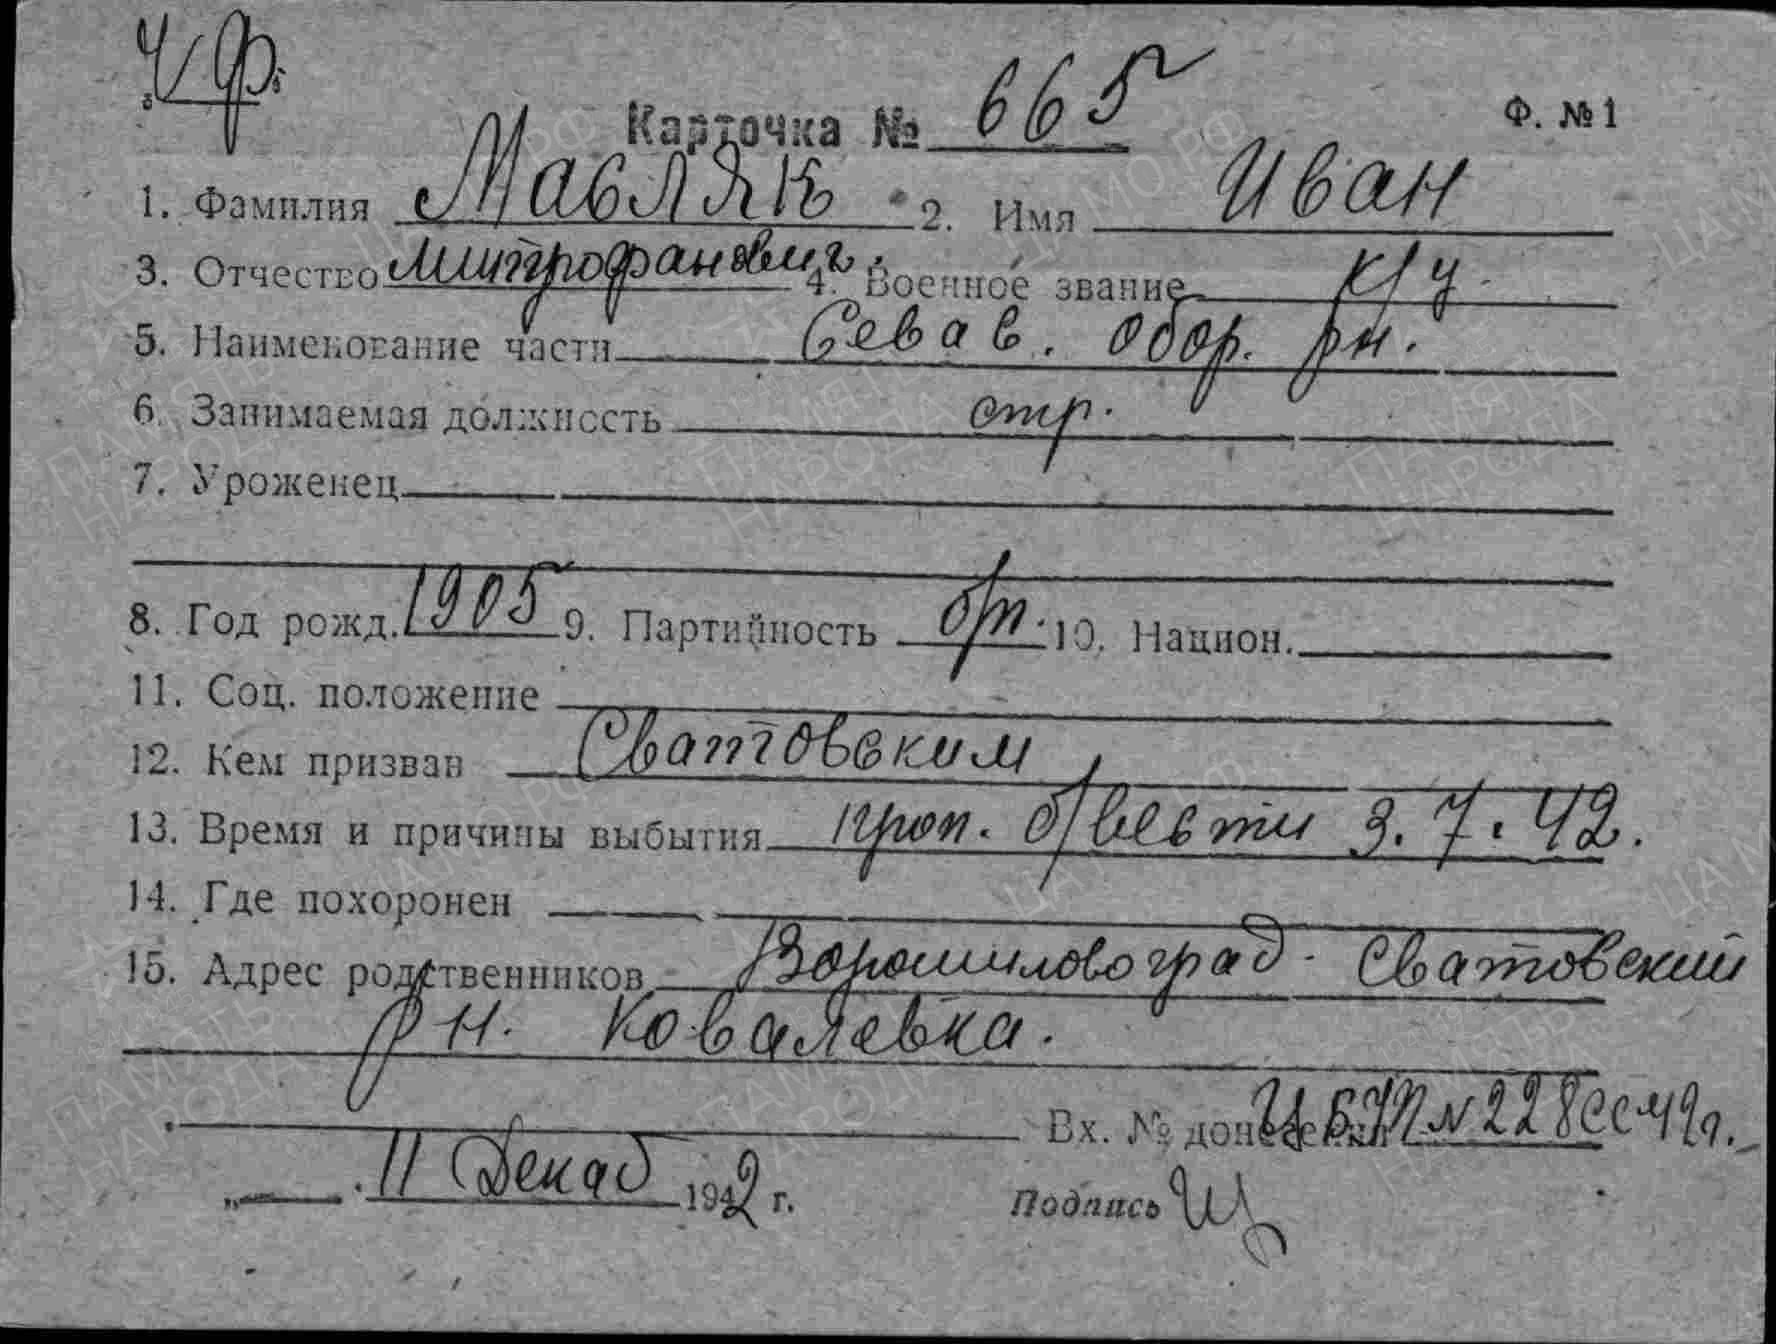 Ч/Ф.
Карточка № 665 Ф. №1
1. Фамилия Масляк 2. Имя Иван
3. Отчество Митрофанович. 4. Военное звание к/ч
5. Наименование части Севас. обор. рн.
6. Занимаемая должность стр.
7. Уроженец
8. Год рожд. 1905 9. Партийность б/п. 10. Национ.
11. Соц. положение
12. Кем призван Сватовским
13. Время и причины выбытия проп. б/вести 3.7.42.
14. Где похоронен
15. Адрес родственников Ворошиловоград. Сватовский
рн. Ковалевка.
Вх. № донесения ЦБУП №228сс 42г.
„ 11 Декаб 1942 г. Подпись
ПАМЯТЬ НАРОДА
ЦАМО РФ